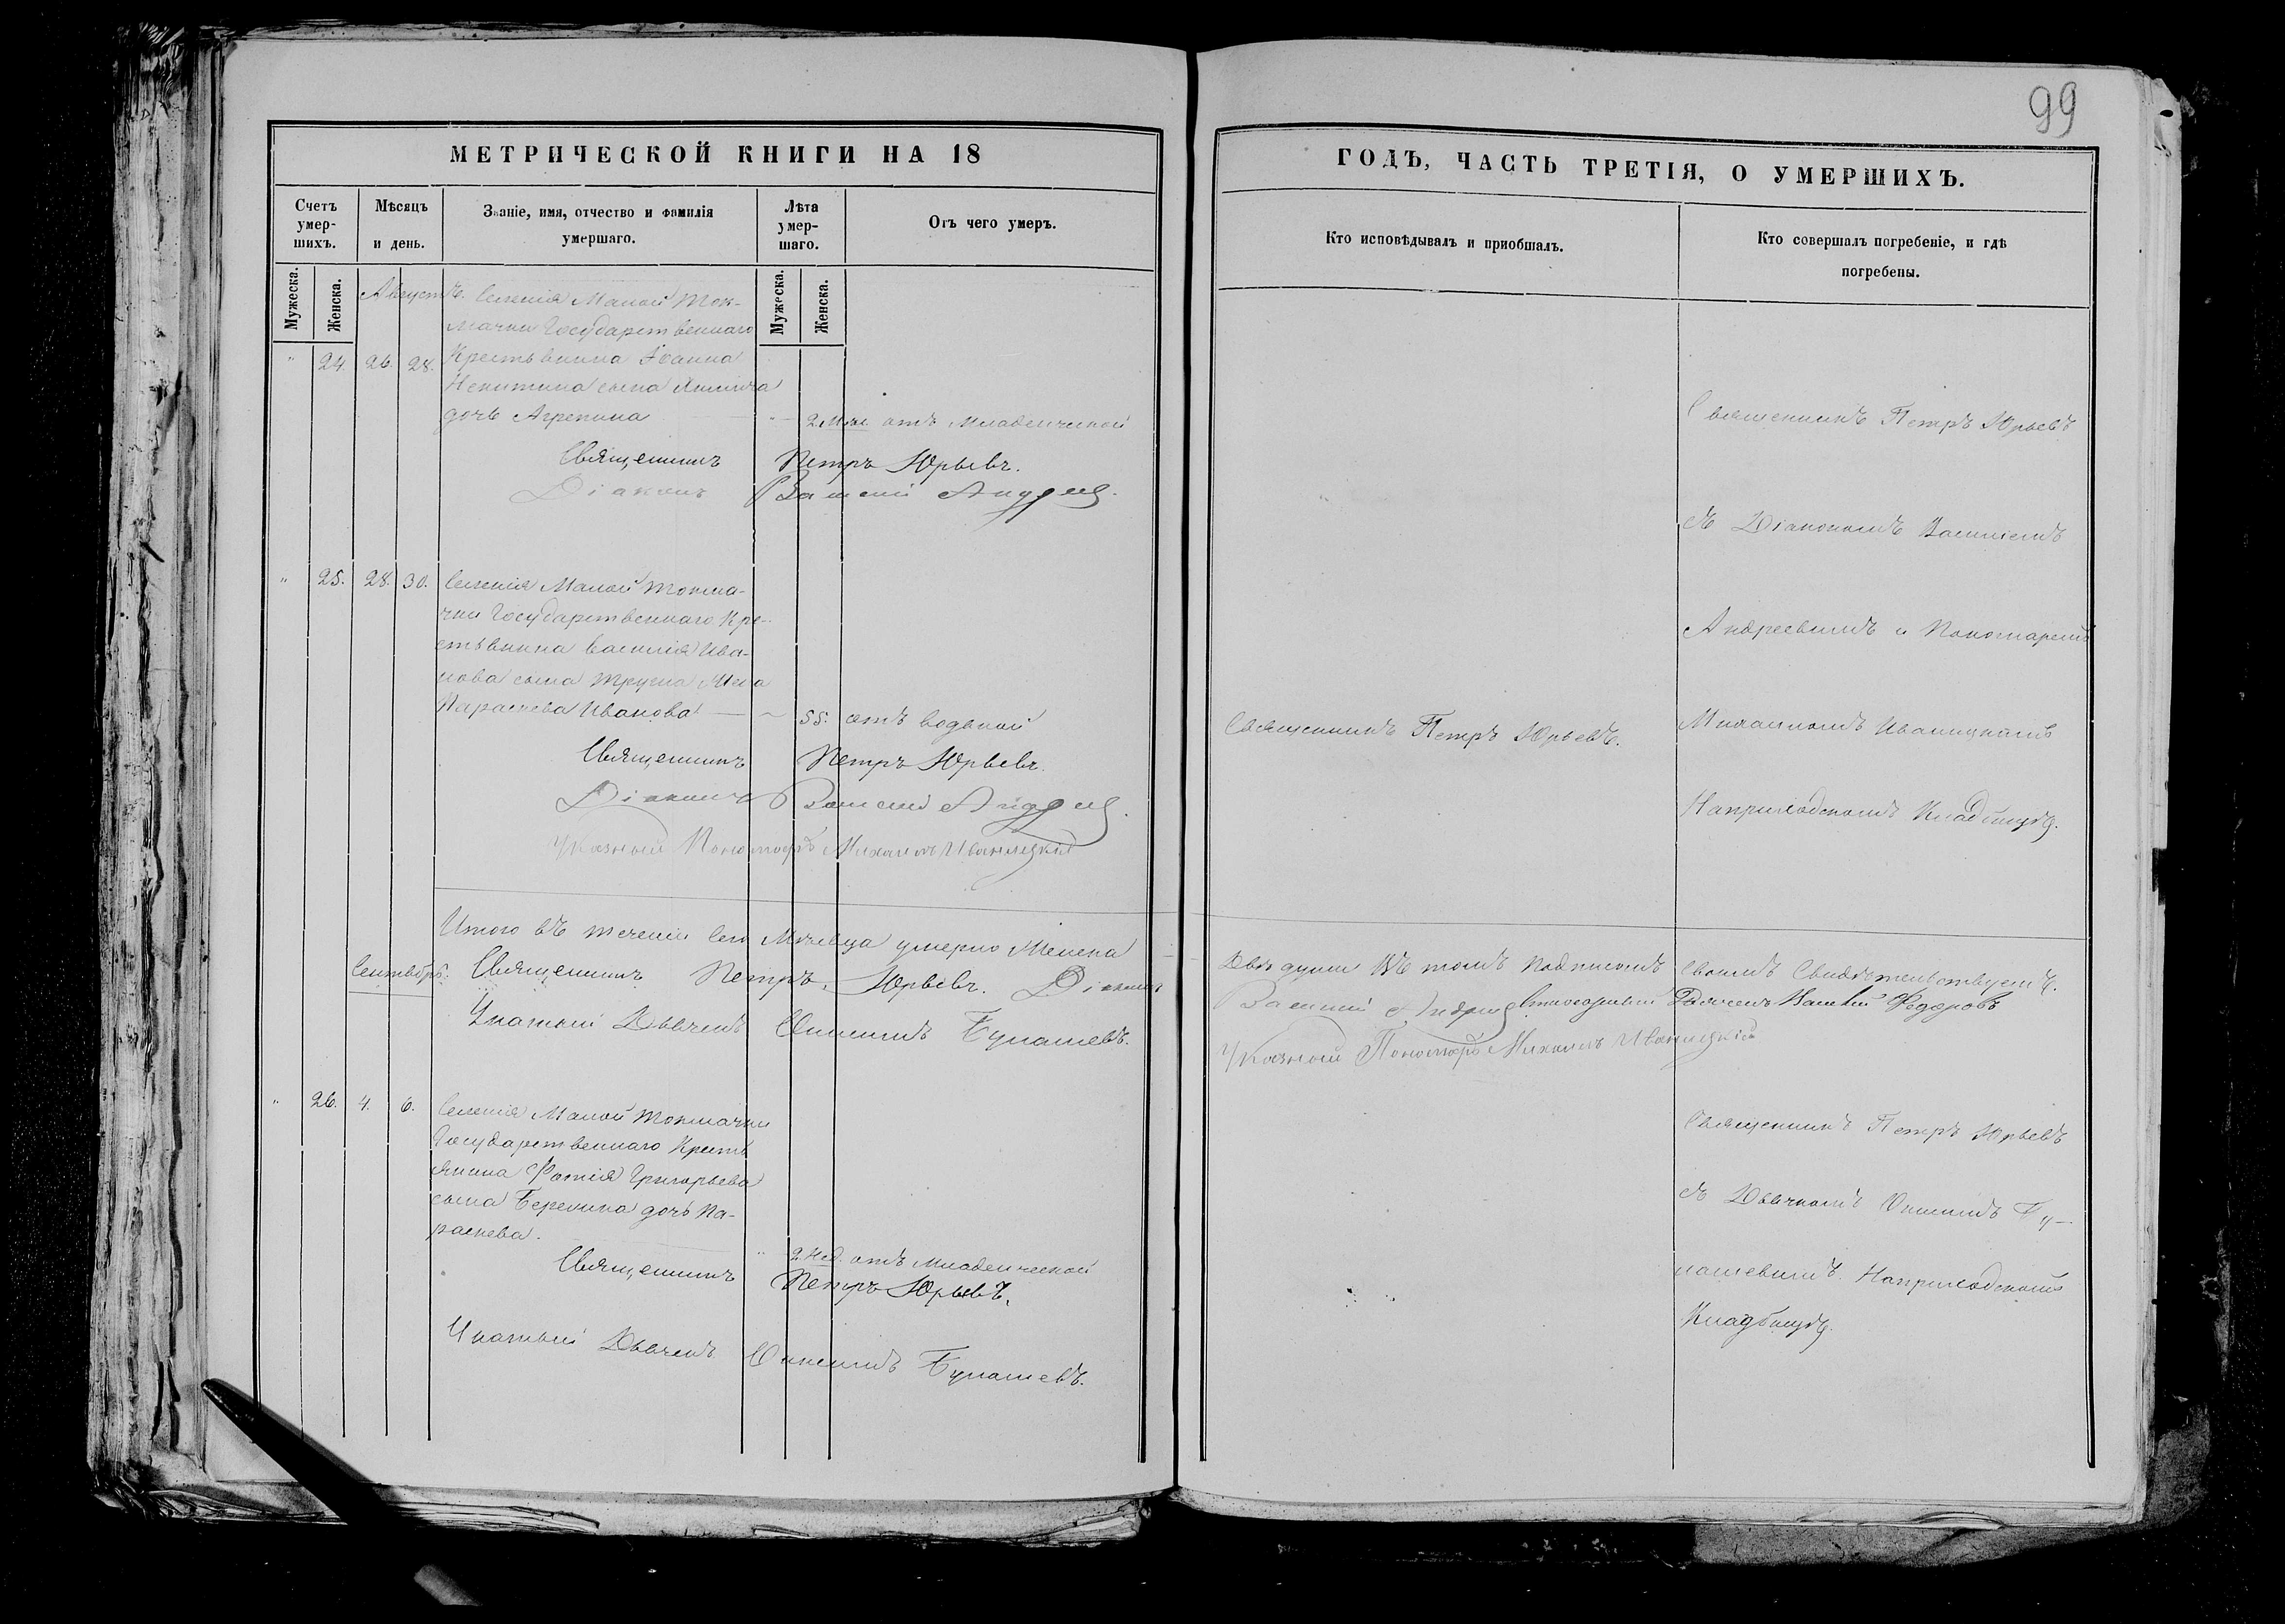 99
МЕТРИЧЕСКОЙ КНИГИ НА 18
ГОДЪ, ЧАСТЬ ТРЕТІЯ, О УМЕРШИХЪ.
Счетъ умер-шихъ.
Мѣсяцъ и день.
Званіе, имя, отчество и фамилія умершаго.
Лѣта умер-шаго.
Отъ чего умеръ.
Кто исповѣдывалъ и пріобщалъ.
Кто совершалъ погребеніе, и гдѣ погребены.
Мужеска.
Женска.
Мужеска.
Женска.
Августъ.
Селенія Малой Ток-
мачки Государственнаго
" 24. 26. 28. Крестьянина Іоанна
Никитина сына
дочь Агрепина " 2 Мѣс. отъ Младенческой
Священникъ Петръ Юрьевъ.
Діаконъ Василій Андреевъ.
" 25. 28. 30. Селенія Малой Токма-
чки Государственнаго Кре-
стьянина Василія Ива-
нова сына Жена
Параскева Иванова 55. отъ водяной
Священникъ Петръ Юрьевъ.
Діаконъ Василій Андреевъ.
Указный Пономарь Михаилъ Иваницкій
Священникъ Петръ Юрьевъ.
Священникъ Петръ Юрьевъ
съ Діакономъ Василіемъ
Андреевымъ и Пономаремъ
Михаиломъ Иваницкимъ
На приходскомъ Кладбищѣ.
Итого въ теченіи сего Мѣсяца умерло Женска
Двѣ души Въ томъ подписомъ своимъ Свидѣтельствуемъ.
Сентябрь. Священникъ Петръ Юрьевъ. Діаконъ
Василій Андреевъ Федоровъ
Указный Дьячекъ Онисимъ
Указный Пономарь Михаилъ Иваницкій
" 26. 4. 6. Селенія Малой Токмачки
Государственнаго Кресть
янина Фотія Григорьева
сына дочь Па-
раскева.
" 2 Нед. отъ Младенческой
Священникъ Петръ Юрьевъ.
Указный Дьячекъ Онисимъ
Священникъ Петръ Юрьевъ
съ Дьячкомъ Онисимомъ
На приходскомъ
Кладбищѣ.